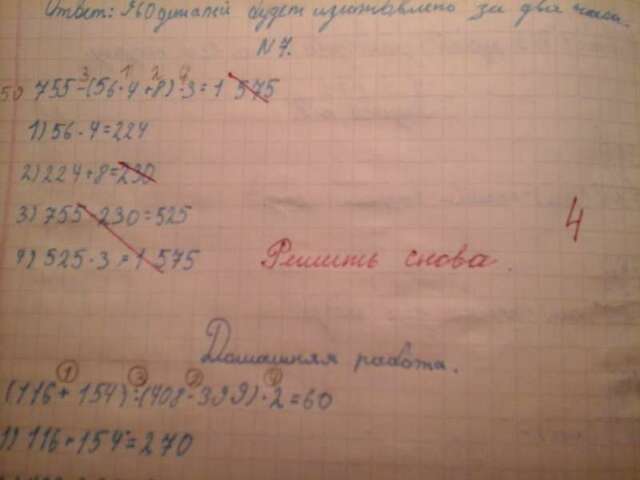 Ответ: 960 деталей будет изготовлено за два часа.
N 7.
3 1 2 4
50 755-(56·4+8)·3=1 575
1) 56·4=224
2) 224+8=230
3) 755-230=525
4) 525·3=1 575
4
Решить снова.
Домашняя работа.
1 3 2 4
(116+154):(408-399)·2=60
1) 116+154=270